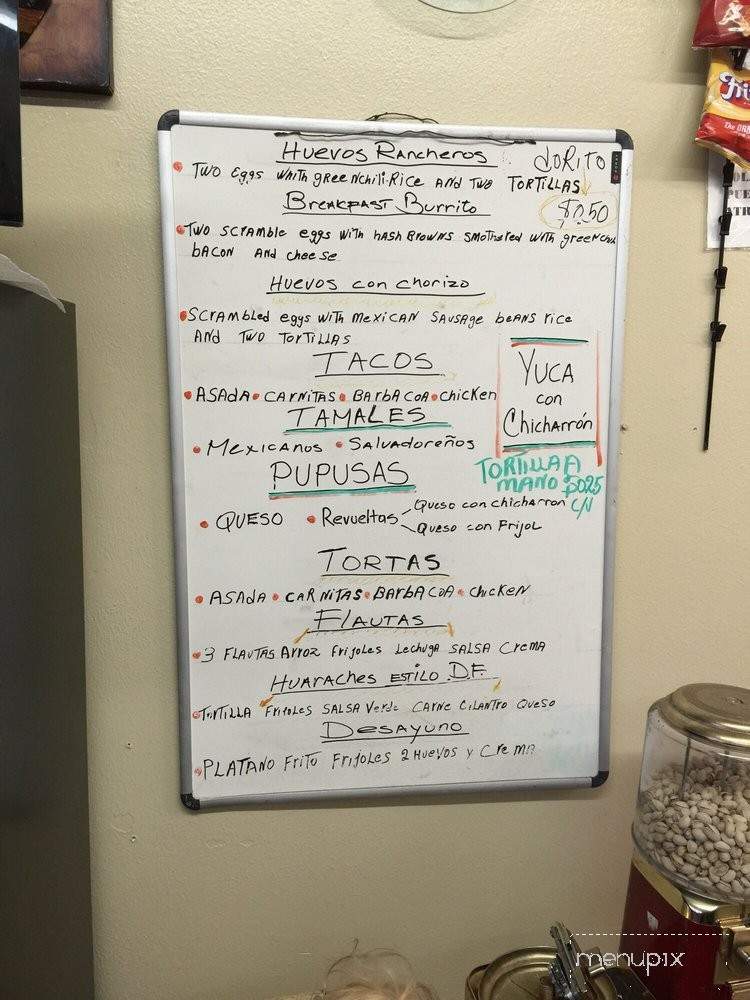 Huevos Rancheros
DORITO
Two eggs whith green chili-Rice and two TORTILLAS
$0.50
Breakfast Burrito
Two scramble eggs with hash browns smothered with green chili
bacon and cheese
Huevos con chorizo
Scrambled eggs with mexican sausage beans rice
and two tortillas
TACOS
ASAdA • CARNitAS • BARbACOA • chicken
YUCA
con
Chicharrón
TAMALES
Mexicanos • Salvadoreños
TORTILLA A
MANO $025
C/N
PUPUSAS
QUESO • Revueltas
Queso con chicharron
Queso con Frijol
TORTAS
ASAdA • CARNitAS • BARbACOA • chicken
FlAUTAS
3 FlAutAs Arroz Frijoles lechuga SALSA Crema
HUARAChes Estilo D.F.
TORTILLA Frijoles SALSA Verde CARNE CILANTRO Queso
Desayuno
PLATANO Frito Frijoles 2 Huevos y Crema
menupix